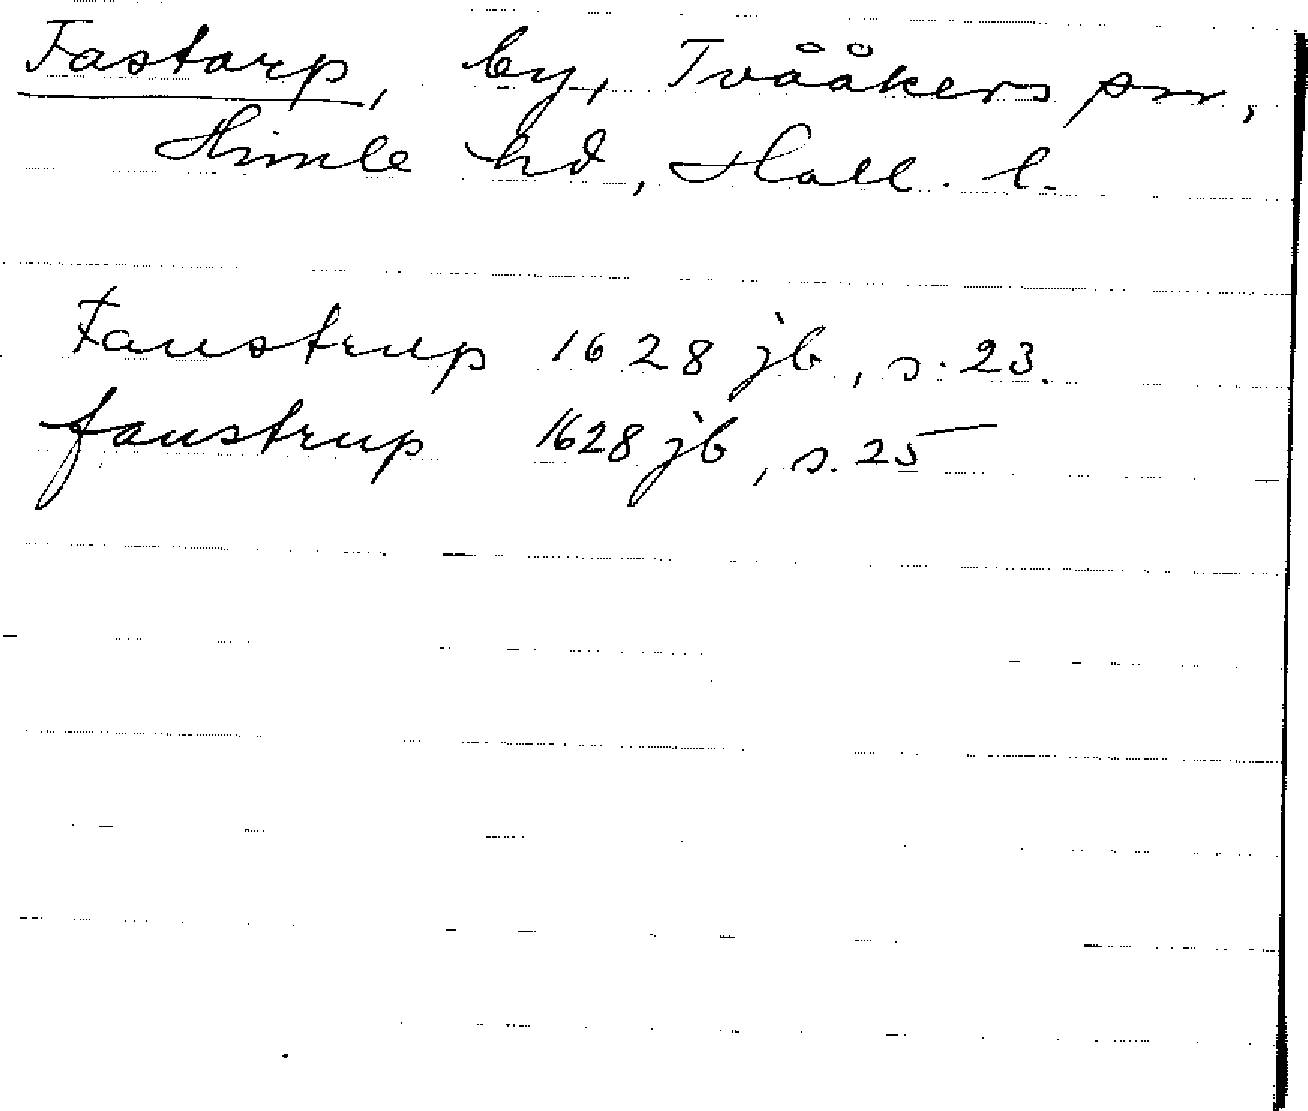 Fastarp, by, Tvååkers snr,
Himle hd, Hall. l.
Faustrup 1628 jb, s. 23.
faustrup 1628 jb, s. 25